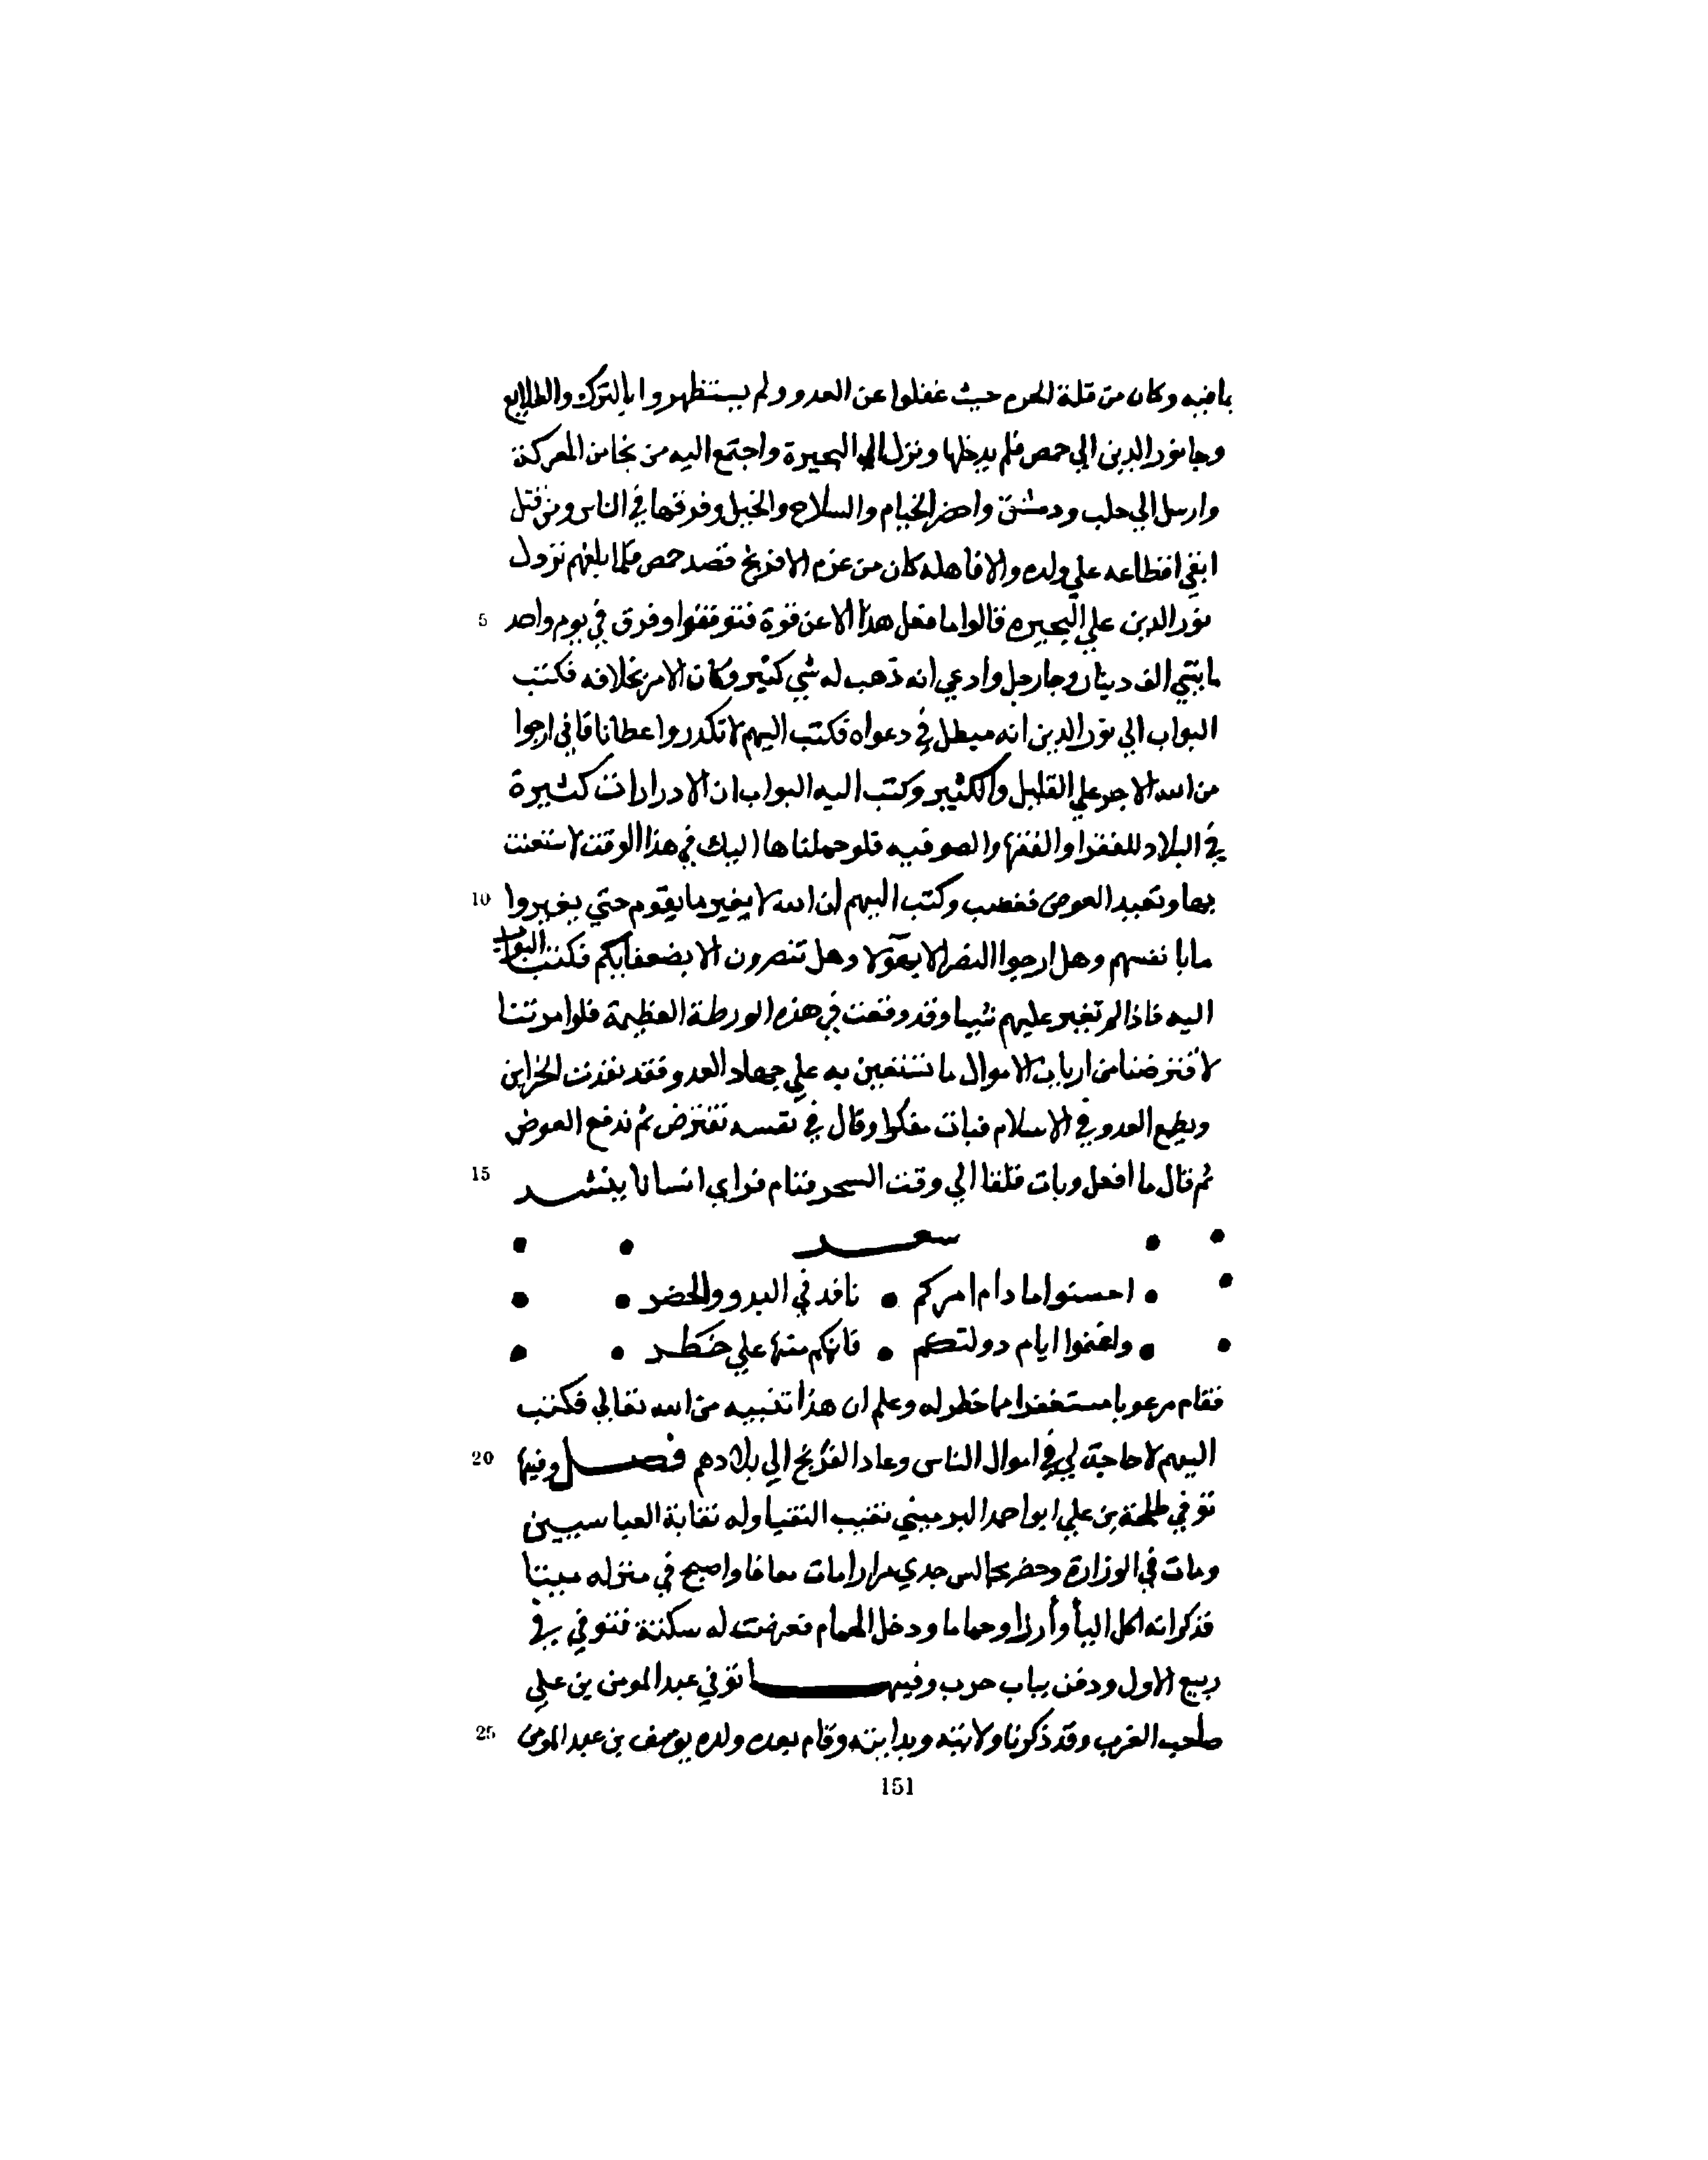 بما فيه وكان من قلة الحزم حيث غفلوا عن العدو ولم يستظهروا باليزك والطلايع
وجا نور الدين الي حمص فلم يدخلها ونزل الي البحيرة واجتمع اليه من نجا من المعركة
وارسل الي حلب ودمشق واحضر الخيام والسلاح والخيل وفرقها في الناس ومن قتل
ابقي اقطاعه علي ولده والا فاهله كان من عزم الافرنج قصد حمص فلما بلغهم نزول
نور الدين علي البحيره قالوا ما فعل هذا الا عن قوة فتوقفوا وفرق في يوم واحد 5
مايتي الف دينار وجا رجل وادعي انه ذهب له شي كثير وكان الامر بخلافه فكتب
النواب الي نور الدين انه مبطل في دعواه فكتب اليهم لا تكدروا عطانا فاني ارجوا
من الله الاجر علي القليل والكثير وكتب اليه النواب ان الادرارات كثيرة
في البلاد للفقرا والفقها والصوفيه فلو حملناها اليك في هذا الوقت لاستعنت
بها وتعيد العوض فغضب وكتب اليهم ان الله لا يغير ما بقوم حتي يغيروا 10
ما بانفسهم وهل ارجوا النصر الا بهولا وهل تنصرون الا بضعفايكم فكتب النواب
اليه فاذا لم تغير عليهم شيا وقد وقعت في هذه الورطة العظيمة فلو امرتنا
لاقترضنا من ارباب الاموال ما نستعين به علي جهاد العدو فقد نفدت الخزاين
وطمع العدو في الاسلام فبات مفكرا وقال في نفسه نقترض ثم ندفع العوض
ثم قال ما افعل وبات قلقا الي وقت السحر فنام فراي انسانا ينشد 15
سعد
احسنوا ما دام امركم • نافد في البدو والحضر
واغنموا ايام دولتكم • فانكم منها علي خطر
فقام مرعوبا مستغفرا مما خطر له وعلم ان هذا تنبيه من الله تعالي فكتب
اليهم لا حاجة لي في اموال الناس وعاد الفرنج الي بلادهم فصل وفيها 20
توفي طلحة بن علي ابو احمد الزينبي نقيب النقبا وله نقابة العباسيين
ومات في الوزارة وحضر مجالس جدي مرارا مات معافا واصبح في منزله ميتا
فذكر انه اكل البأ وأرزا وحماما ودخل الحمام فعرضت له سكتة فتوفي في
ربيع الاول ودفن بباب حرب وفيها توفي عبد المومن بن علي
صاحب الغرب وقد ذكرنا ولايته وبدايته وقام بعده ولده يوسف بن عبد المومن 25
151